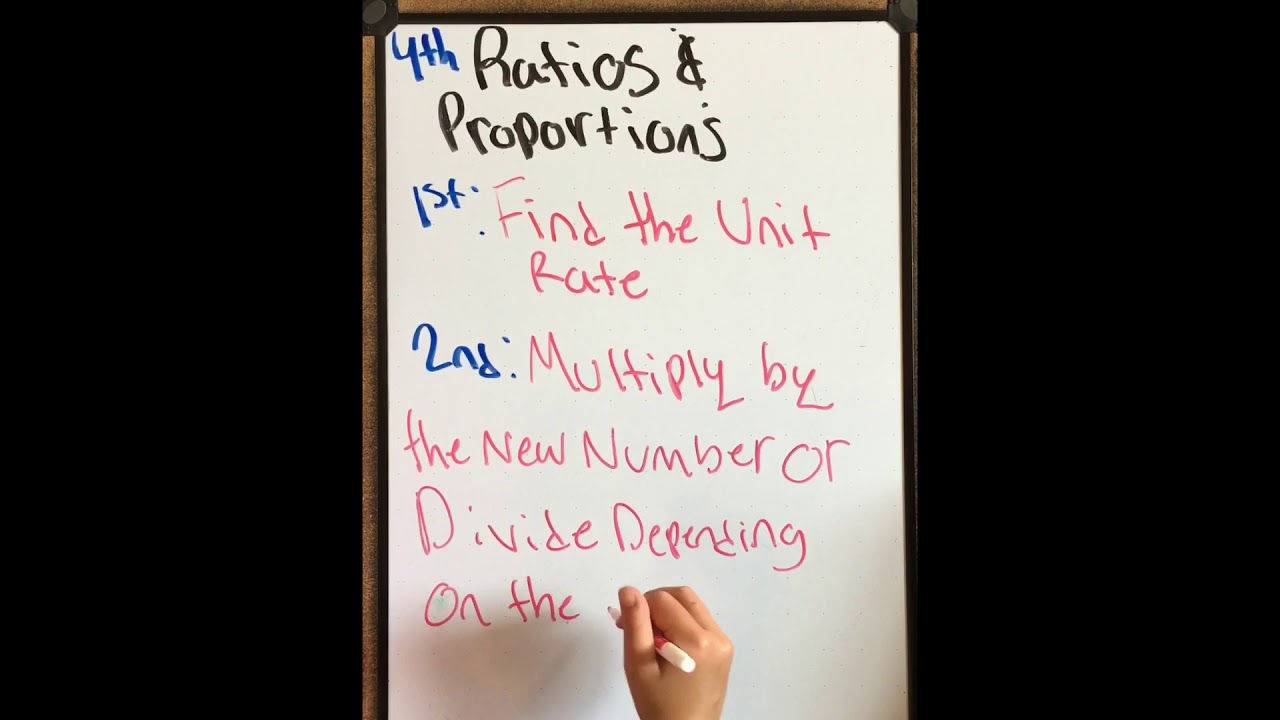 4th Ratios &
Proportions
1st: Find the Unit
Rate
2nd: Multiply by
the New Number or
Divide Depending
On the